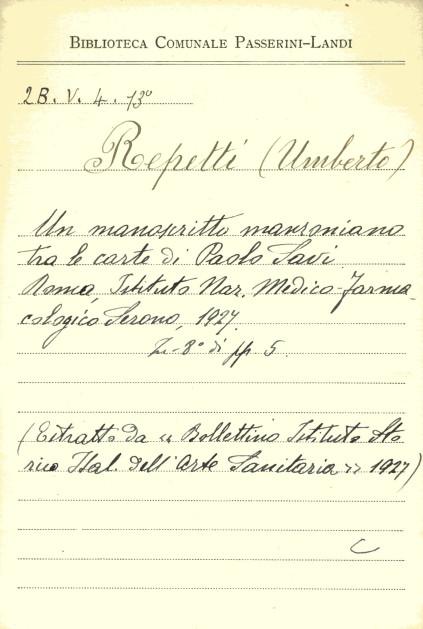 BIBLIOTECA COMUNALE PASSERINI-LANDI
2B. V. 4. 13°
Repetti (Umberto)
Un manoscritto manzoniano
tra le carte di Paolo Savi
Roma, Istituto Naz. Medico-Farma-
cologico Serono, 1927.
In-8° di pp. 5.
(Estratto da « Bollettino Istituto Sto
rico Ital. dell'Arte Sanitaria » 1927)
C